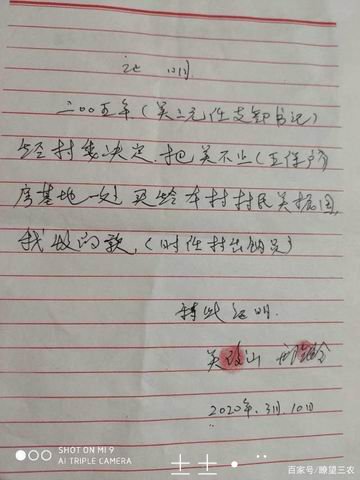 证明
二00五年(关二元任支部书记)
经村委决定,把关不止(五保户)
房基地一处买给本村村民关振国,
我收的款,(时任村出纳员)
特此证明.
关
2020年.3月.10日
SHOT ON MI 9
AI TRIPLE CAMERA
百家号/瞭望三农